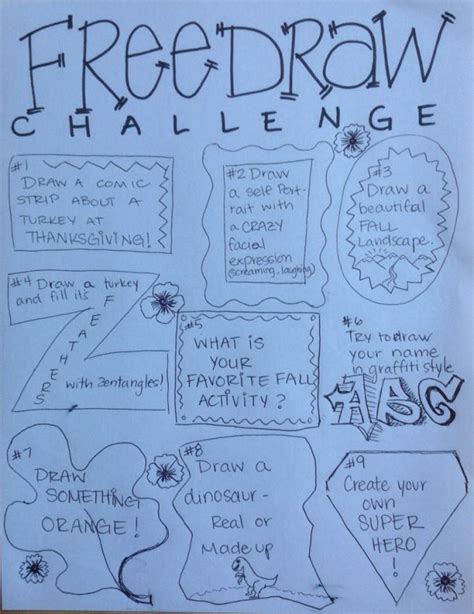 FREEDRAW
CHALLENGE
#1
DRAW A COMIC
STRIP ABOUT A
TURKEY AT
THANKSGIVING!
#2 Draw
a self Port-
rait with
a CRAZY
facial
expression
#3
Draw a
beautiful
FALL
Landscape.
#4 Draw a turkey
and fill its
FEATHERS
with zentangles!
#5
WHAT IS
YOUR
FAVORITE FALL
ACTIVITY?
#6
Try to draw
your name
in graffiti style
ABC
#7
DRAW
SOMETHING
ORANGE!
#8
Draw a
dinosaur-
Real or
Made up
#9
Create your
own
SUPER
HERO
!